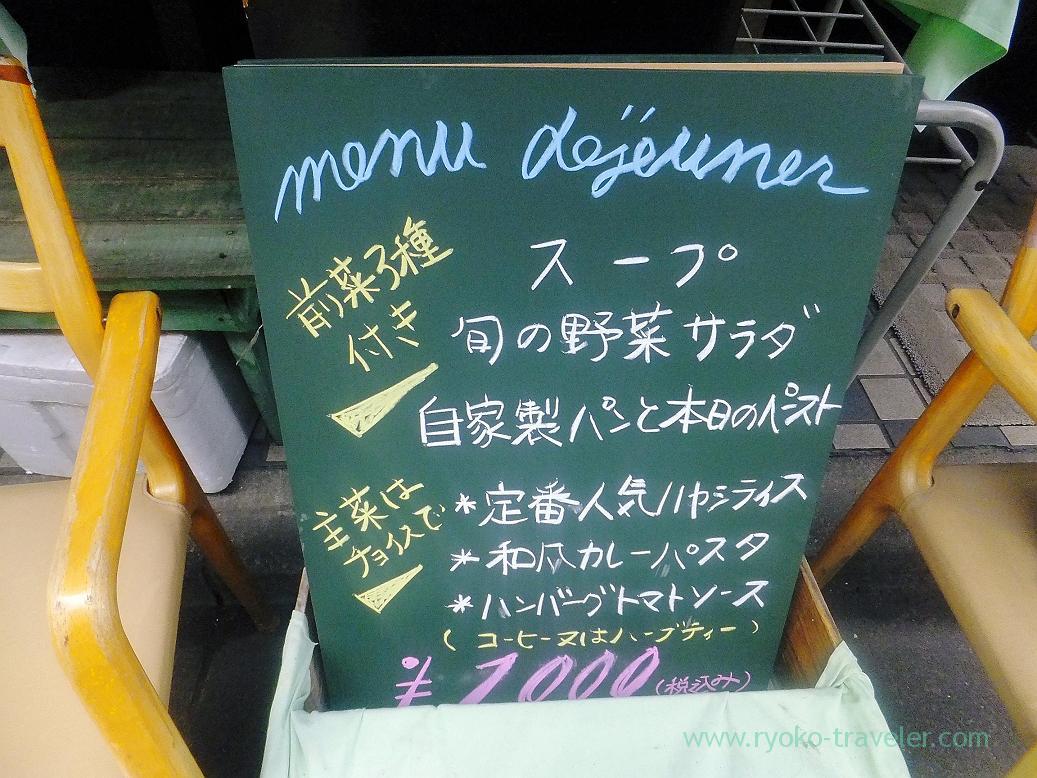 menu déjeuner
前菜3種
付き
スープ
旬の野菜サラダ
自家製パンと本日のペースト
主菜は
チョイスで
*定番人気ハヤシライス
*和風カレーパスタ
*ハンバーグトマトソース
(コーヒー又はハーブティー)
¥1000(税込み)
www.ryoko-traveler.com